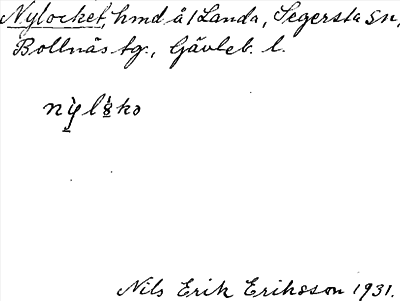 Nylocket, hmd å 1 Landa, Segersta sn,
Bollnäs tg., Gävleb. l.
Nils Erik Eriksson 1931.